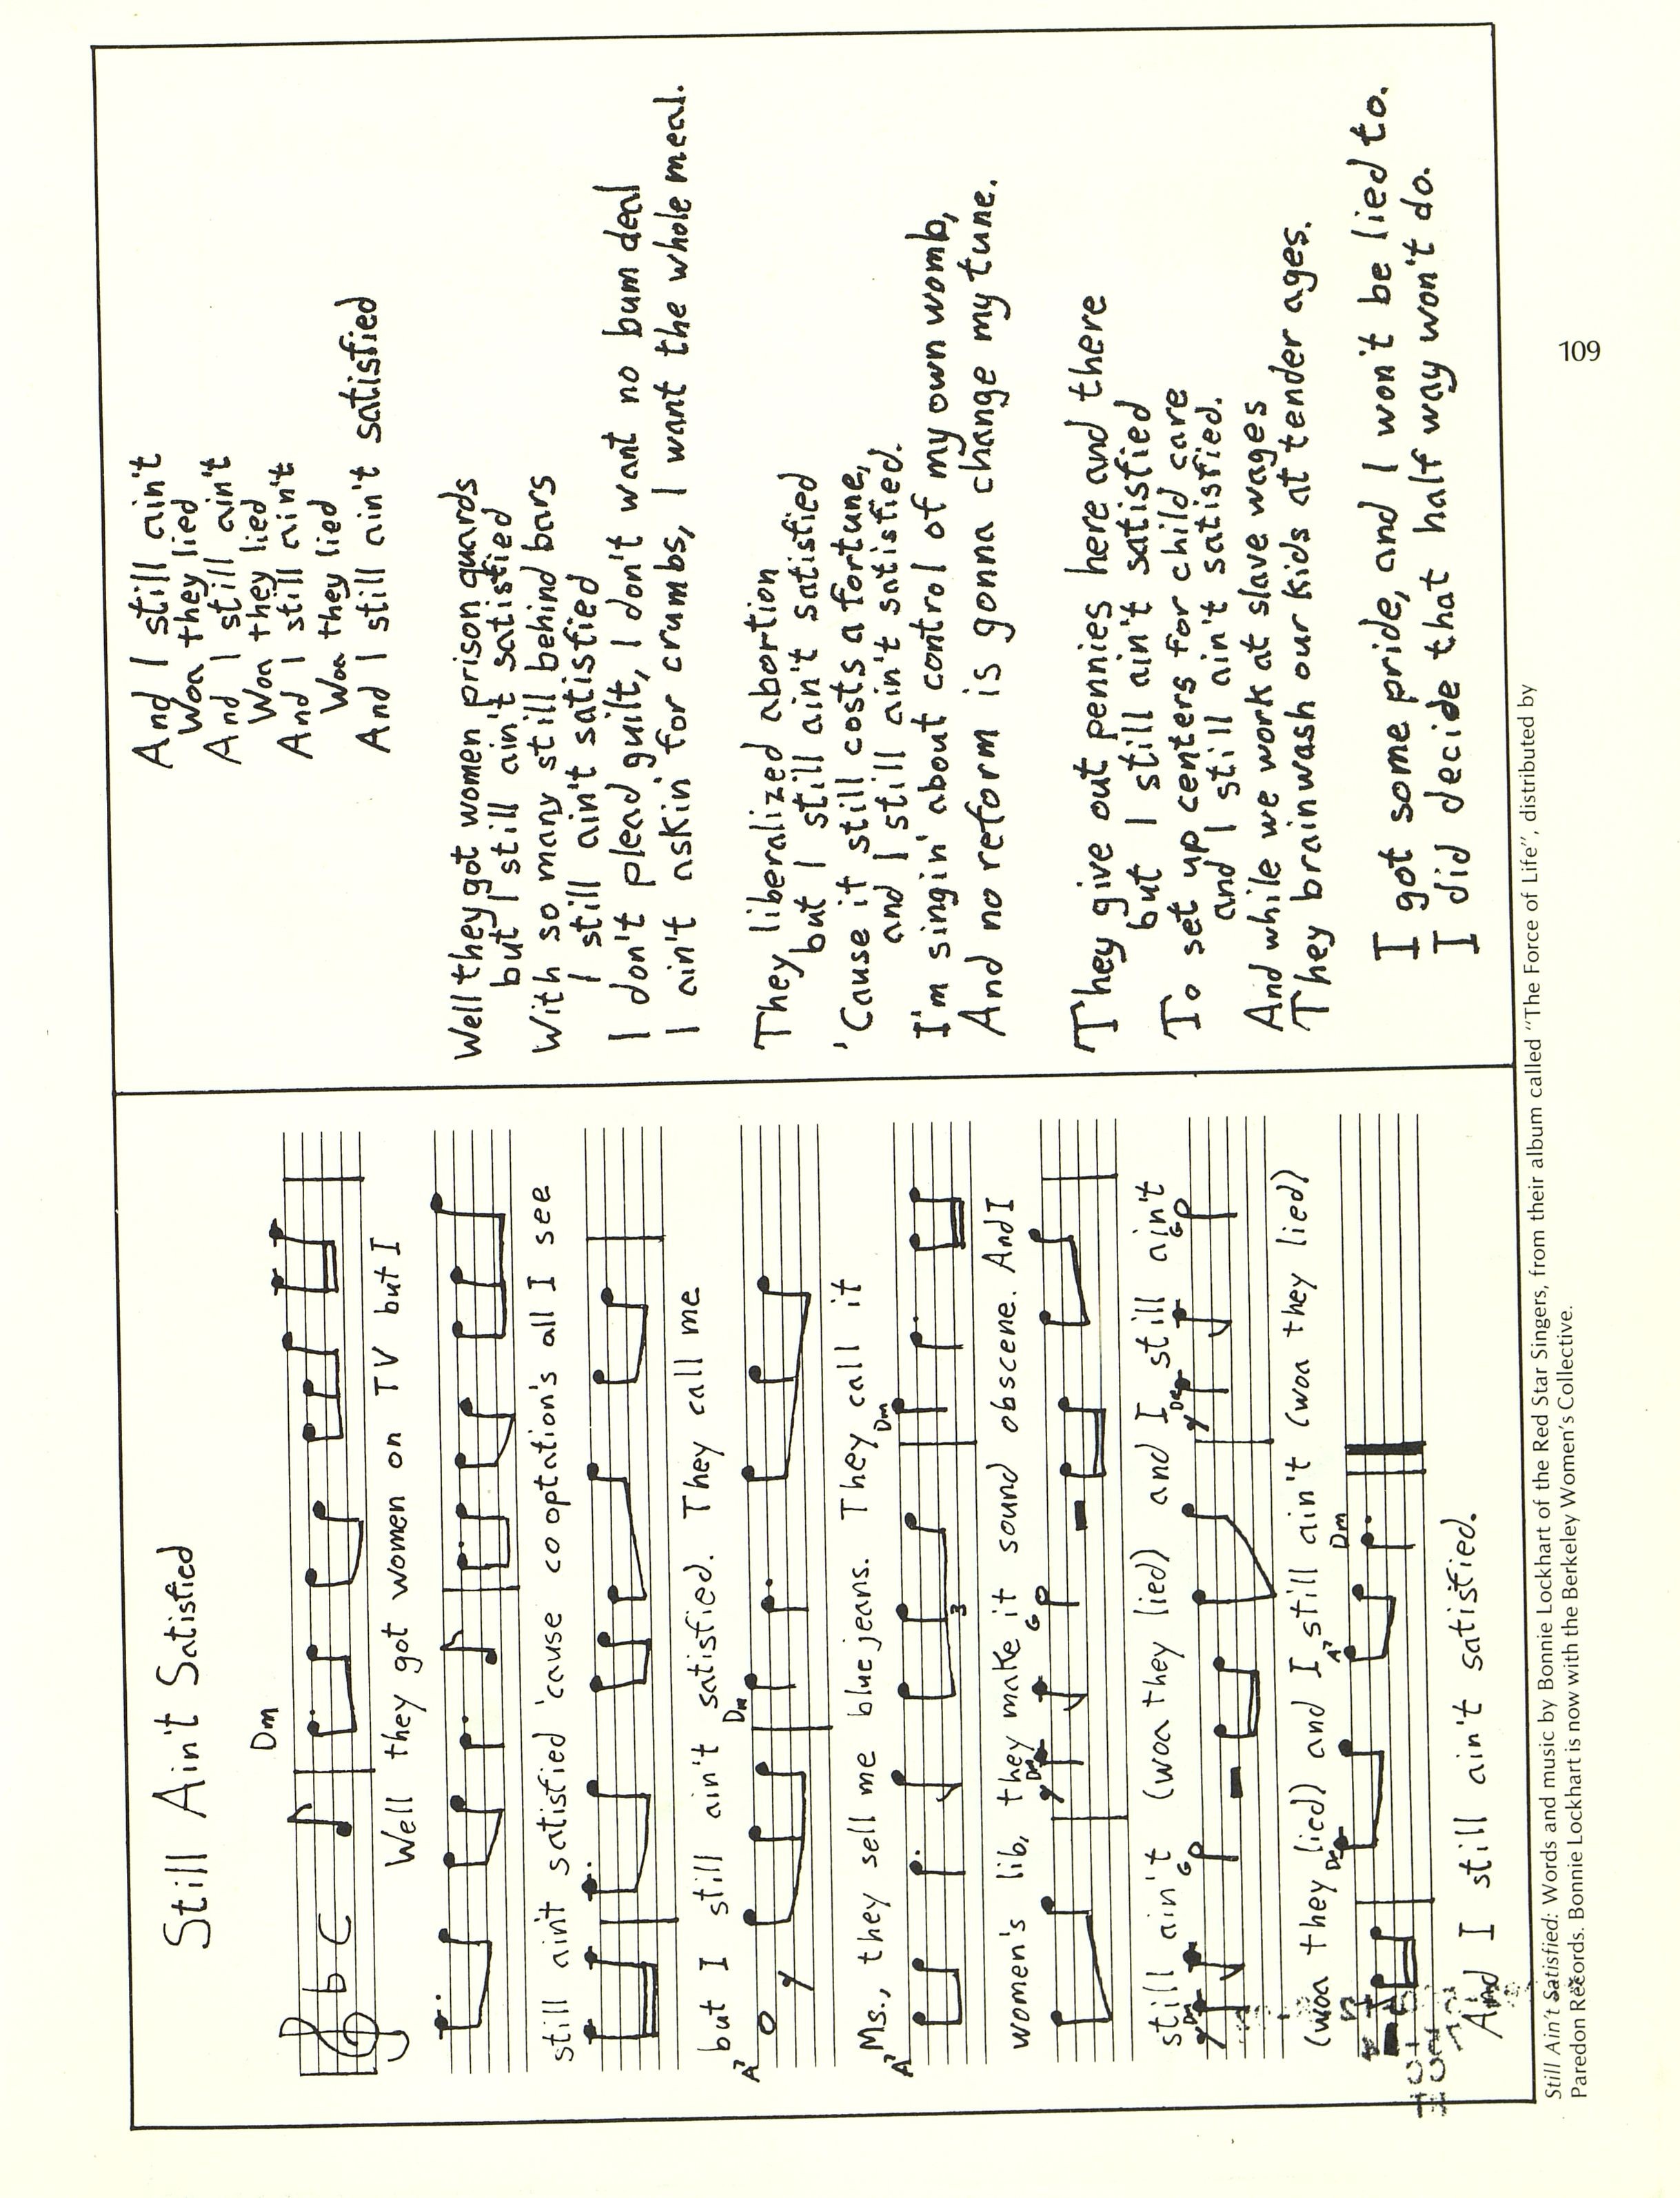 Still Ain't Satisfied
Dm
Well they got women on TV but I
still ain't satisfied 'cause cooptation's all I see
but I still ain't satisfied. They call me
A7 Dm
Ms., they sell me blue jeans. They call it
A7 Dm
women's lib, they make it sound obscene. And I
Dm G
still ain't (woa they lied) and I still ain't
Dm G Dm G
(woa they lied) and I still ain't (woa they lied)
Dm A7 Dm
And I still ain't satisfied.
And I still ain't
Woa they lied
And I still ain't
Woa they lied
And I still ain't
Woa they lied
And I still ain't satisfied
Well they got women prison guards
but I still ain't satisfied
With so many still behind bars
I still ain't satisfied
I don't plead guilt, I don't want no bum deal
I ain't askin' for crumbs, I want the whole meal.
They liberalized abortion
but I still ain't satisfied
'Cause it still costs a fortune,
and I still ain't satisfied.
I'm singin' about control of my own womb,
And no reform is gonna change my tune.
They give out pennies here and there
but I still ain't satisfied
To set up centers for child care
and I still ain't satisfied.
And while we work at slave wages
They brainwash our kids at tender ages.
I got some pride, and I won't be lied to.
I did decide that half way won't do.
Still Ain't Satisfied: Words and music by Bonnie Lockhart of the Red Star Singers, from their album called "The Force of Life", distributed by
Paredon Records. Bonnie Lockhart is now with the Berkeley Women's Collective.
109